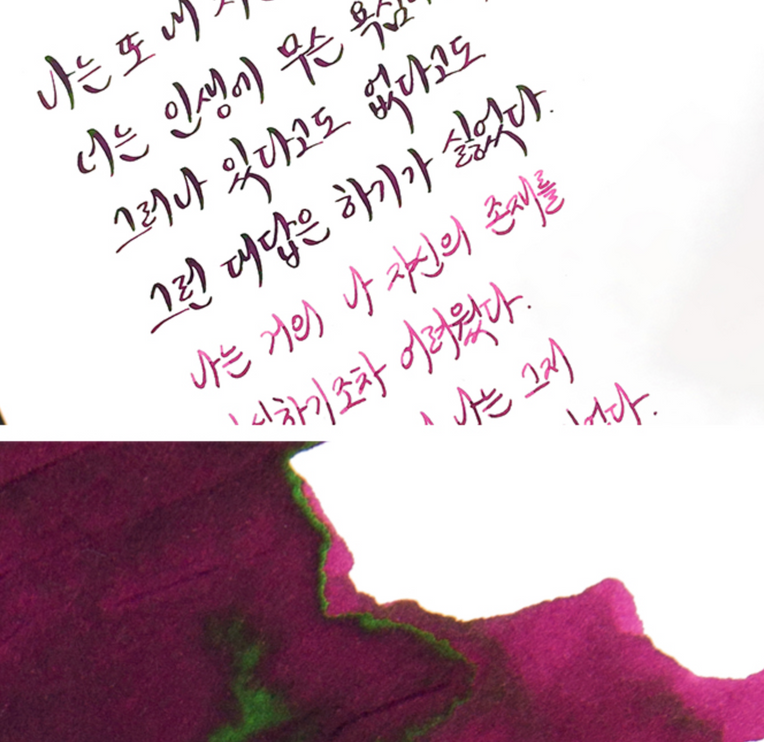 나는 또 내
너는 인생에 무슨 욕심
그러나 있다고도 없다고도
그런 대답은 하기가 싫었다.
나는 거의 나 자신의 존재를
하기조차 어려웠다.
나는 그저